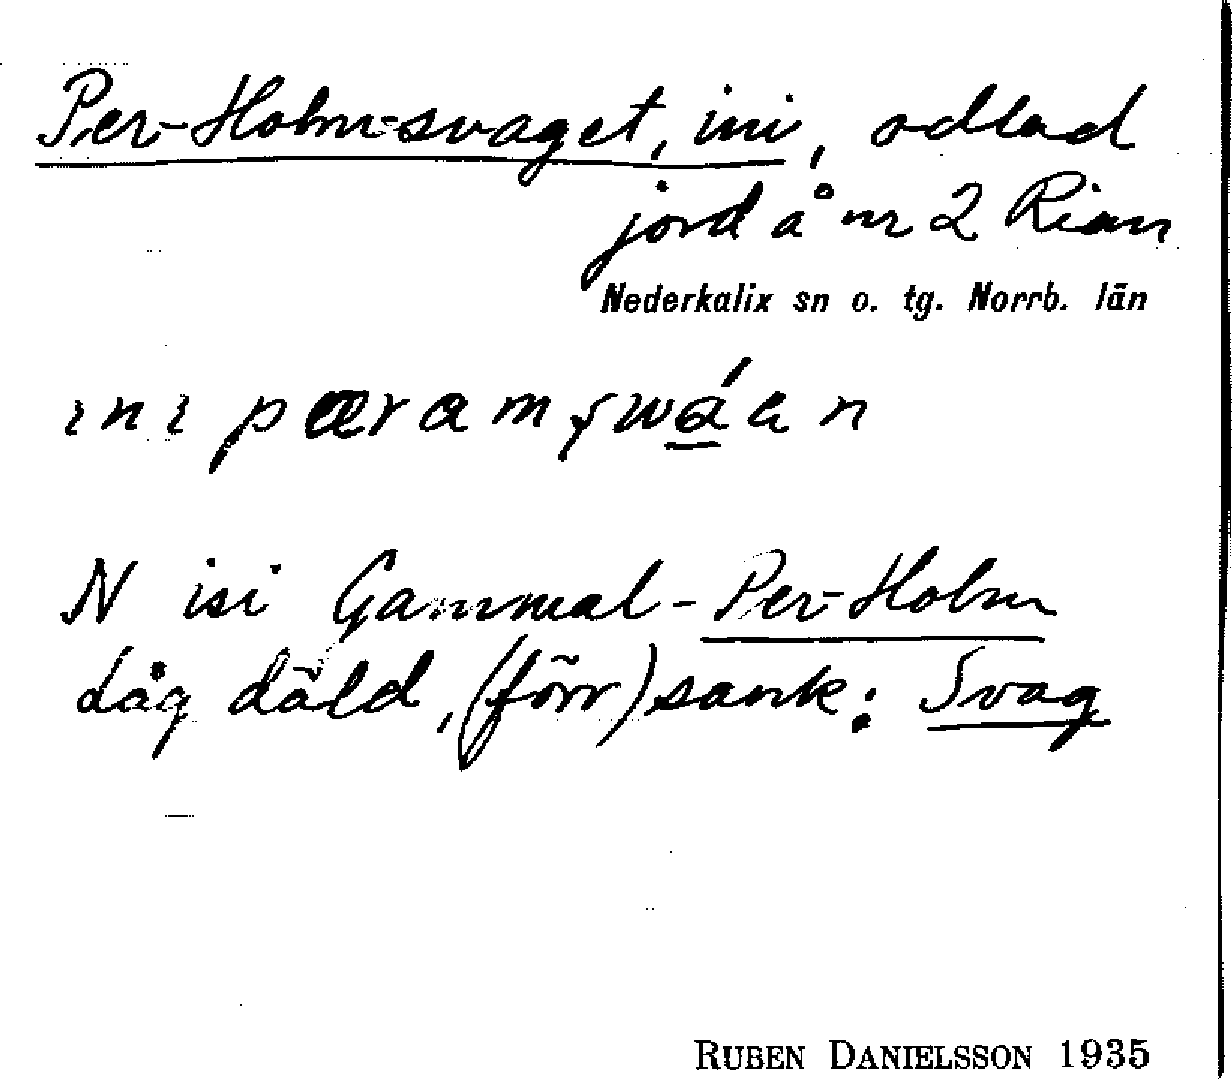 Per-Holm-svaget, ini, odlad
jord å nr 2 Rian
Nederkalix sn o. tg. Norrb. län
ini pæramşwáan
N isi Gammal-Per-Holm
Låg däld, (förr) sank: Svag
RUBEN DANIELSSON 1935